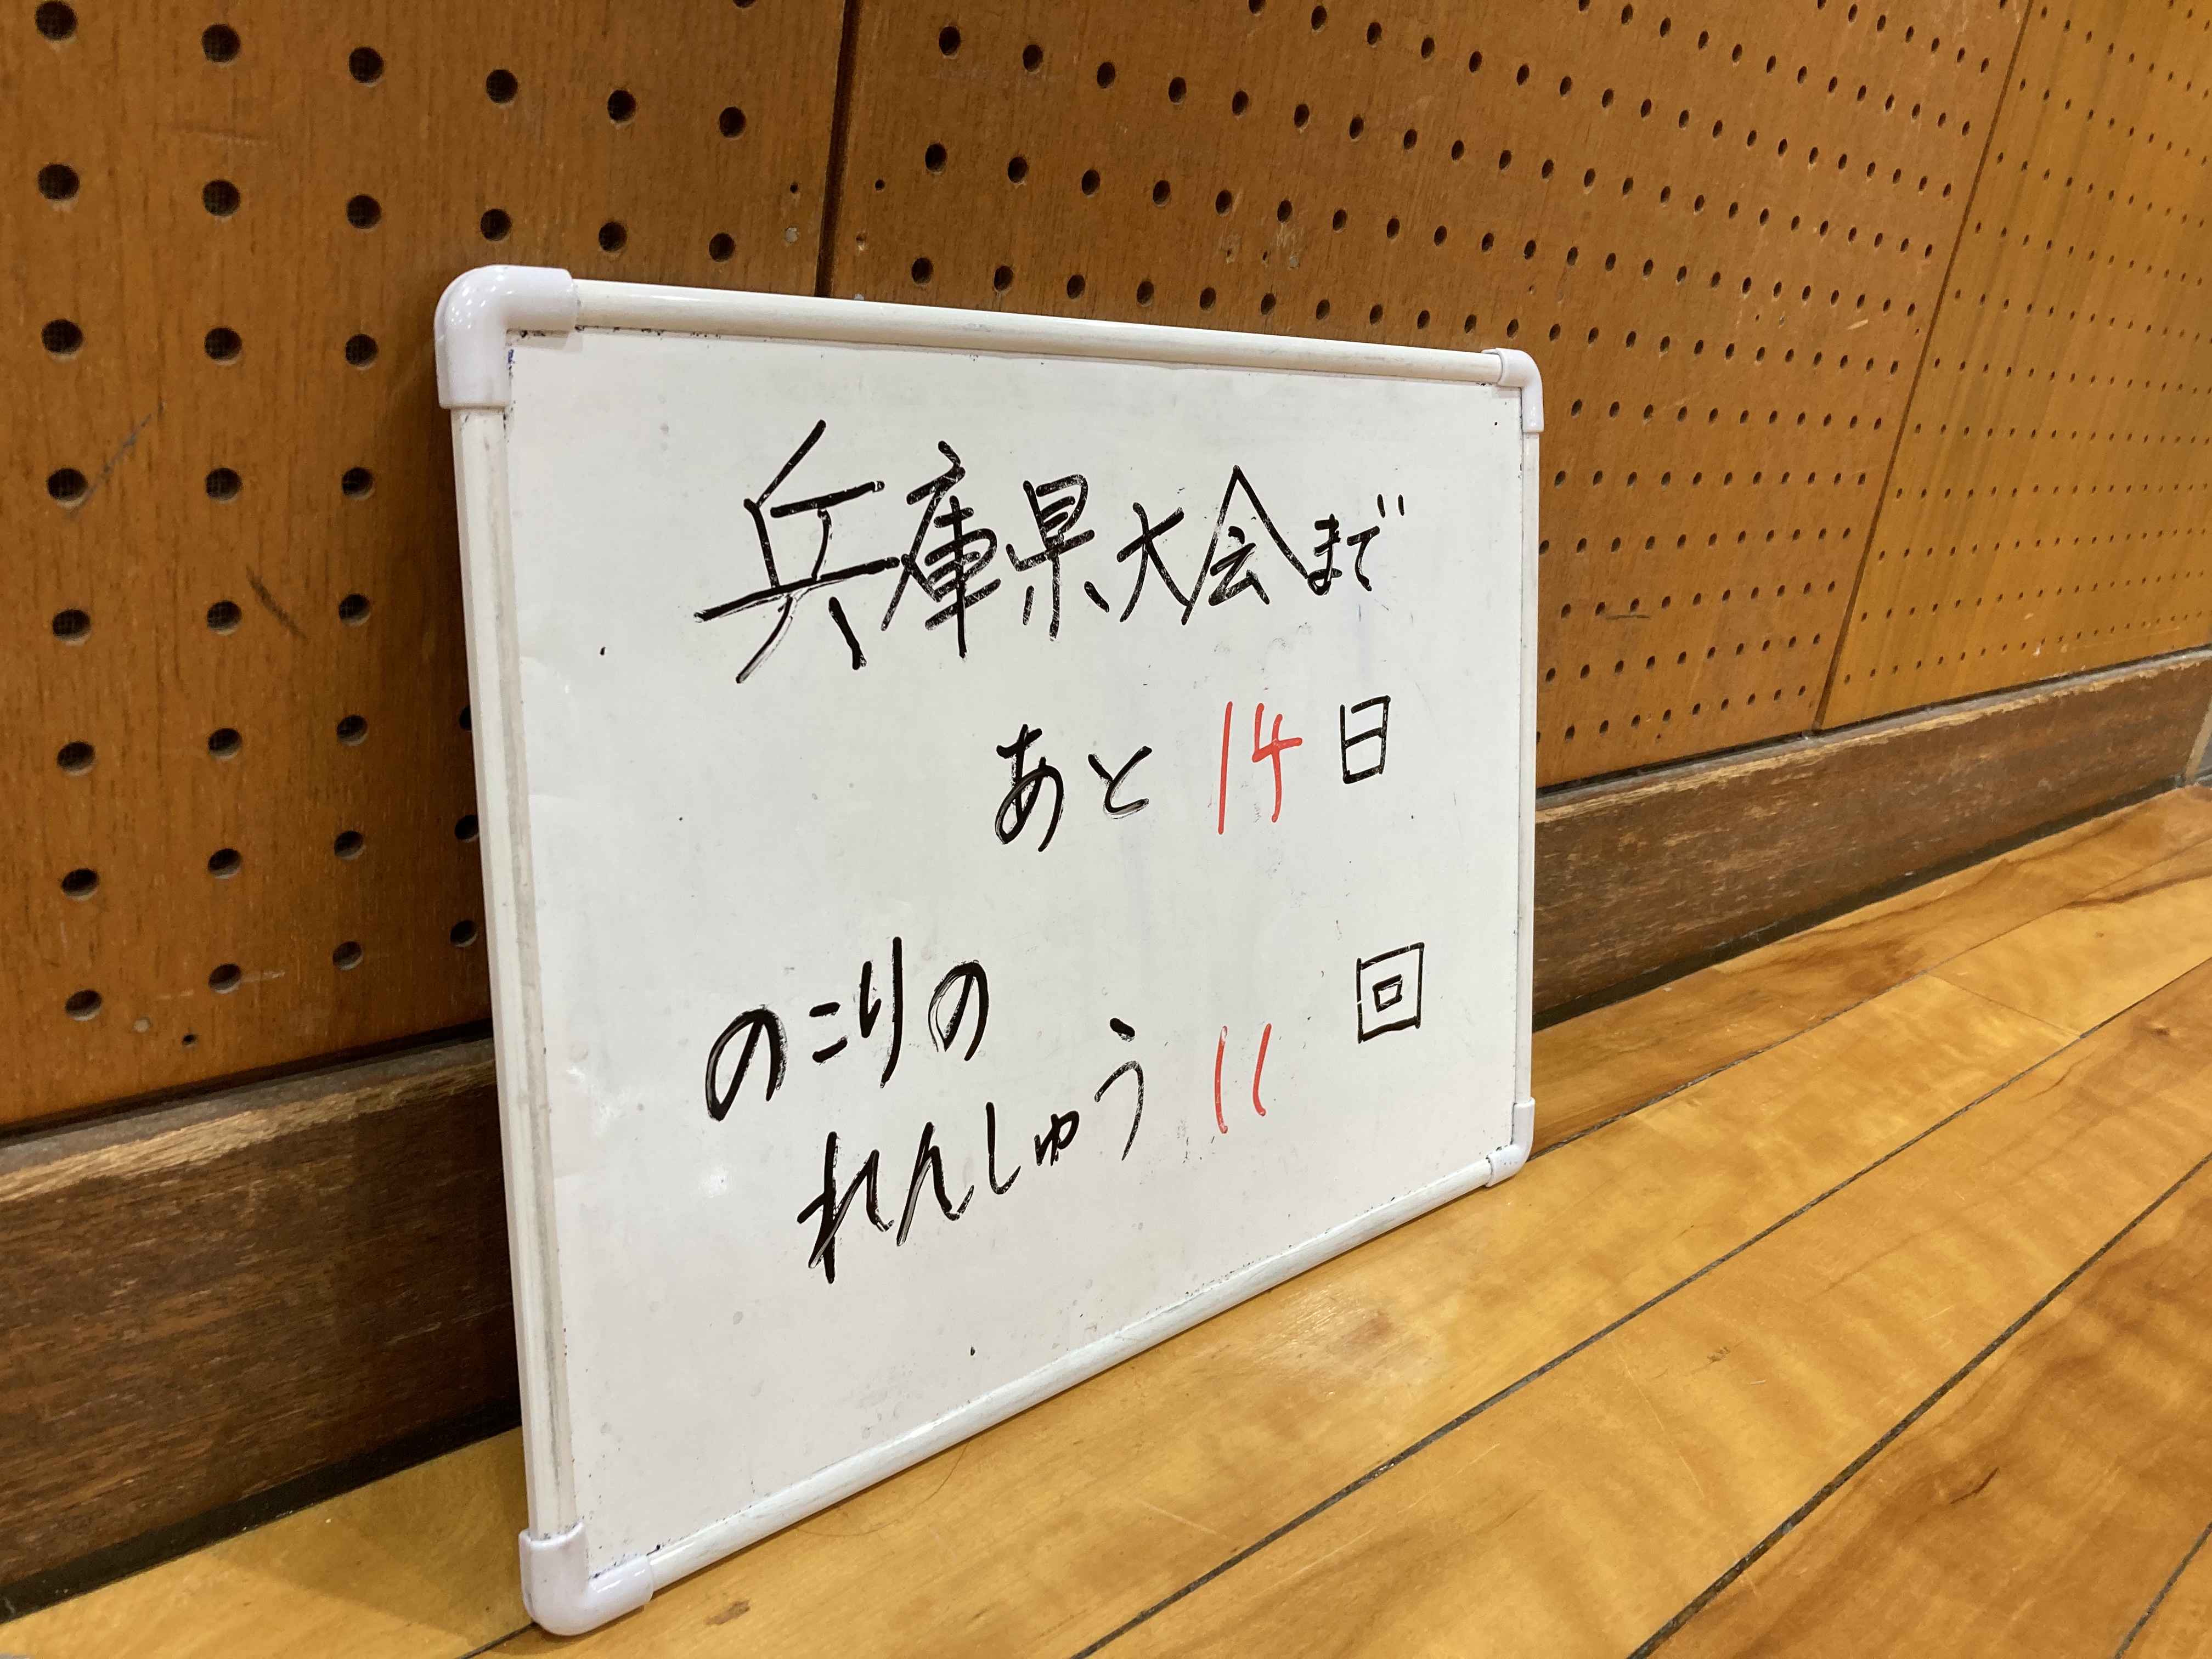 兵庫県大会まで
あと 14 日
のこりの
れんしゅう 11 回